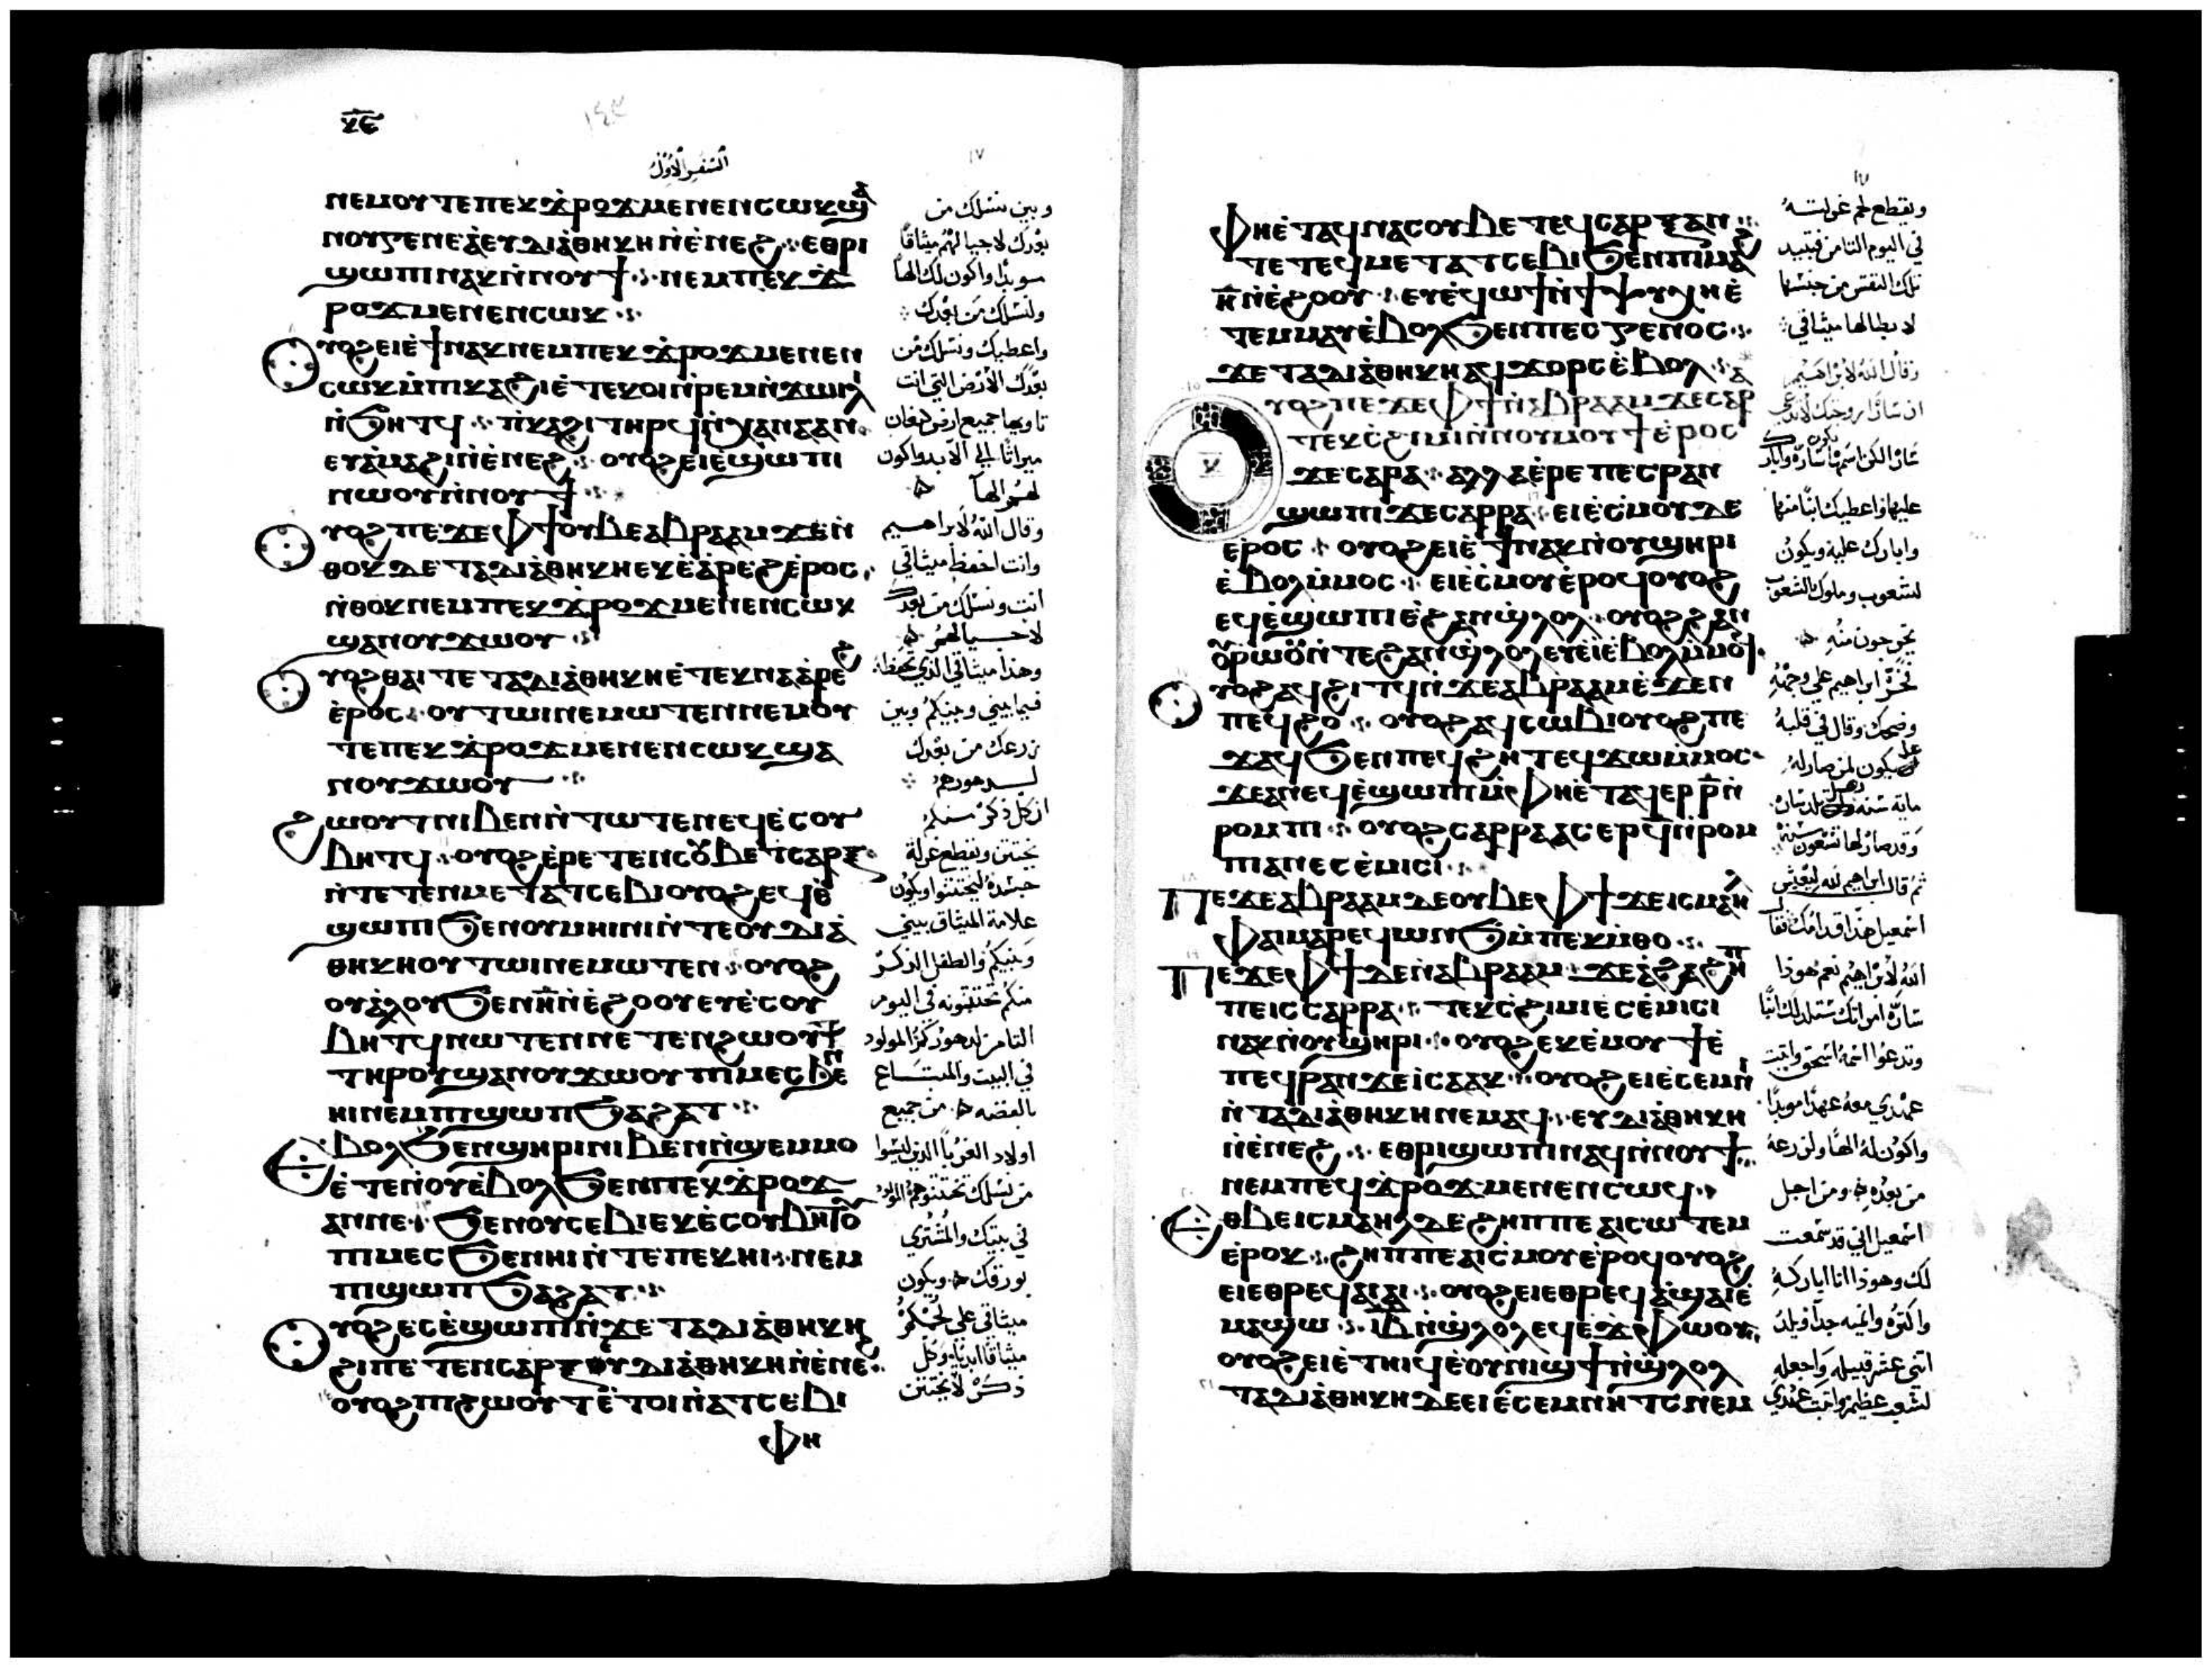 ⲕⲉ
١٤٣
السفر الاول
١٧
ⲛⲉⲙⲟⲩⲧⲉ ⲡⲉⲕϫⲣⲟϫ ⲙⲉⲛⲉⲛⲥⲱⲕ ϣⲁ
ⲛⲟⲩⲅⲉⲛⲉⲁ ⲉⲩⲇⲓⲁⲑⲏⲕⲏ ⲛⲉⲛⲉϩ ⲉⲑⲣⲓ
ϣⲱⲡⲓ ⲛⲁⲕ ⲛⲛⲟⲩϯ ⲛⲉⲙ ⲡⲉⲕϫ
ⲣⲟϫ ⲙⲉⲛⲉⲛⲥⲱⲕ
ⲟⲩⲟϩ ⲉⲓⲉϯ ⲛⲁⲕ ⲛⲉⲙ ⲡⲉⲕϫⲣⲟϫ ⲙⲉⲛⲉⲛ
ⲥⲱⲕ ⲙⲡⲓⲕⲁϩⲓ ⲉⲧⲉⲕⲟⲓ ⲛⲣⲉⲙⲛϫⲱⲓⲗⲓ
ⲛϧⲏⲧϥ ⲡⲕⲁϩⲓ ⲧⲏⲣϥ ⲛⲭⲁⲛⲁⲁⲛ
ⲉⲩⲁⲙⲁϩⲓ ⲛⲉⲛⲉϩ ⲟⲩⲟϩ ⲉⲓⲉϣⲱⲡⲓ
ⲛⲱⲟⲩ ⲛⲛⲟⲩϯ
ⲟⲩⲟϩ ⲡⲉϫⲉ ⲫϯ ⲟⲩⲃⲉ ⲁⲃⲣⲁⲁⲙ ϫⲉ ⲛ
ⲑⲟⲕ ⲇⲉ ⲧⲁⲇⲓⲁⲑⲏⲕⲏ ⲉⲕⲉⲁⲣⲉϩ ⲉⲣⲟⲥ
ⲛⲑⲟⲕ ⲛⲉⲙ ⲡⲉⲕϫⲣⲟϫ ⲙⲉⲛⲉⲛⲥⲱⲕ
ϣⲁ ⲛⲟⲩϫⲱⲟⲩ
ⲟⲩⲟϩ ⲑⲁⲓ ⲧⲉ ⲧⲁⲇⲓⲁⲑⲏⲕⲏ ⲉⲧⲉⲕⲛⲁⲁⲣⲉϩ
ⲉⲣⲟⲥ ⲟⲩⲧⲱⲓ ⲛⲉⲙⲱⲧⲉⲛ ⲛⲉⲙ ⲟⲩ
ⲧⲉ ⲡⲉⲕϫⲣⲟϫ ⲙⲉⲛⲉⲛⲥⲱⲕ ϣⲁ
ⲛⲟⲩϫⲱⲟⲩ
ϩⲱⲟⲩⲧ ⲛⲓⲃⲉⲛ ⲛⲧⲱⲧⲉⲛ ⲉⲩⲉⲥⲟⲩ
ⲃⲏⲧϥ ⲟⲩⲟϩ ⲉⲣⲉⲧⲉⲛⲥⲟⲩⲃⲉ ⲧⲥⲁⲣⲝ
ⲛⲧⲉ ⲧⲉⲛⲙⲉⲧⲁⲧⲥⲉⲃⲓ ⲟⲩⲟϩ ⲉϥⲉ
ϣⲱⲡⲓ ϧⲉⲛ ⲟⲩⲙⲏⲓⲛⲓ ⲛⲧⲉ ⲟⲩⲇⲓⲁ
ⲑⲏⲕⲏ ⲟⲩⲧⲱⲓ ⲛⲉⲙⲱⲧⲉⲛ ⲟⲩⲟϩ
ⲟⲩⲁⲗⲟⲩ ϧⲉⲛ ⲏ ⲛⲉϩⲟⲟⲩ ⲉⲩⲉⲥⲟⲩ
ⲃⲏⲧϥ ⲛⲱⲧⲉⲛ ⲛⲉⲧⲉⲛϩⲱⲟⲩⲧ
ⲧⲏⲣⲟⲩ ϣⲁ ⲛⲟⲩϫⲱⲟⲩ ⲡⲓⲙⲉⲥ ϧⲉⲛ
ⲏⲓ ⲛⲉⲙ ⲡⲓϣⲱⲡ ϧⲁ ϩⲁⲧ
ⲉⲃⲟⲗ ϧⲉⲛ ϣⲏⲣⲓ ⲛⲓⲃⲉⲛ ⲛϣⲉⲙⲙⲟ
ⲉⲧⲉ ⲛⲟⲩⲉⲃⲟⲗ ϧⲉⲛ ⲡⲉⲕϫⲣⲟϫ
ⲁⲛ ⲛⲉ ϧⲉⲛ ⲟⲩⲥⲉⲃⲓ ⲉⲕⲉⲥⲟⲩⲃⲏⲧⲟⲩ
ⲡⲓⲙⲉⲥ ϧⲉⲛ ⲏⲓ ⲛⲧⲉ ⲡⲉⲕⲏⲓ ⲛⲉⲙ
ⲡⲓϣⲱⲡ ϧⲁ ϩⲁⲧ
ⲟⲩⲟϩ ⲉⲥⲉϣⲱⲡⲓ ⲛϫⲉ ⲧⲁⲇⲓⲁⲑⲏⲕⲏ
ϩⲓ ⲡⲉⲧⲉⲛⲥⲁⲣⲝ ⲟⲩⲇⲓⲁⲑⲏⲕⲏ ⲛⲉⲛⲉϩ
ⲟⲩⲟϩ ⲡⲓϩⲱⲟⲩⲧ ⲉⲧⲟⲓ ⲛⲁⲧⲥⲉⲃⲓ
ⲫⲏ
وبين نسلك من
بعدك لاجيالهم ميثاقا
سويدا واكون لك الها
ولنسلك من بعدك
واعطيك ونسلك من
بعدك الارض التي انت
تاويها جميع ارض كنعان
ميراثا الي الابد واكون
لهم الها
وقال الله لابراهيم
وانت احفظ ميثاقي
انت ونسلك من بعدك
لاجيالهم
وهذا ميثاقي الذي تحفظه
فيما بيني وبينكم وبين
زرعك من بعدك
لدهورهم
ان كل ذكر منكم
يختتن ويقطع غرلة
جسده ليختتنوا ويكون
علامة الميثاق بيني
وبينكم والطفل الذكر
منكم تختتنونه في اليوم
الثامن لدهور كل المولود
في البيت والمبتاع
بالفضه من جميع
اولاد الغربا الذين ليسوا
من نسلك تختتنوهم المولود
في بيتك والمشتري
بورقك ويكون
ميثاقي علي لحمكم
ميثاقا ابديا وكل
ذكر لا يختتن
١٧
ⲫⲏ ⲉⲧⲁϥⲛⲁⲥⲟⲩⲃⲉ ⲧⲉϥⲥⲁⲣⲝ ⲁⲛ
ⲧⲉ ⲧⲉϥⲙⲉⲧⲁⲧⲥⲉⲃⲓ ϧⲉⲛ ⲡⲓⲙⲁϩ
ⲏ ⲛⲉϩⲟⲟⲩ ⲉⲩⲉϥⲱϯ ⲛϯⲯⲩⲭⲏ ⲉ
ⲧⲉⲙⲙⲁⲩ ⲉⲃⲟⲗ ϧⲉⲛ ⲡⲉⲥⲅⲉⲛⲟⲥ
ϫⲉ ⲧⲁⲇⲓⲁⲑⲏⲕⲏ ⲁϥϫⲟⲣⲥ ⲉⲃⲟⲗ
ⲟⲩⲟϩ ⲡⲉϫⲉ ⲫϯ ⲛⲁⲃⲣⲁⲁⲙ ϫⲉ ⲥⲁⲣ
ⲧⲉⲕⲥϩⲓⲙⲓ ⲛⲛⲟⲩⲙⲟⲩϯ ⲉⲣⲟⲥ
ⲕ
ϫⲉ ⲥⲁⲣⲁ ⲁⲗⲗⲁ ⲉⲣⲉ ⲡⲉⲥⲣⲁⲛ
ϣⲱⲡⲓ ϫⲉ ⲥⲁⲣⲣⲁ ⲉⲓⲉⲥⲙⲟⲩ ⲇⲉ
ⲉⲣⲟⲥ ⲟⲩⲟϩ ⲉⲓⲉϯ ⲛⲁⲕ ⲛⲟⲩϣⲏⲣⲓ
ⲉⲃⲟⲗ ⲙⲙⲟⲥ ⲉⲓⲉⲥⲙⲟⲩ ⲉⲣⲟϥ ⲟⲩⲟϩ
ⲉϥⲉϣⲱⲡⲓ ⲉϩⲁⲛϣⲗⲟⲗ ⲟⲩⲟϩ ϩⲁⲛ
ⲟⲩⲣⲱⲟⲩ ⲛⲧⲉ ϩⲁⲛϣⲗⲟⲗ ⲉⲩⲉⲓ ⲉⲃⲟⲗ ⲙⲙⲟϥ
ⲟⲩⲟϩ ⲁϥϩⲓⲧϥ ⲛϫⲉ ⲁⲃⲣⲁⲁⲙ ⲉϫⲉⲛ
ⲡⲉϥϩⲟ ⲟⲩⲟϩ ⲁϥⲥⲱⲃⲓ ⲟⲩⲟϩ ⲡⲉ
ϫⲁϥ ϧⲉⲛ ⲡⲉϥϩⲏⲧ ⲉϥϫⲱ ⲙⲙⲟⲥ
ϫⲉ ⲁⲛ ⲉϥⲉϣⲱⲡⲓ ⲙⲫⲏ ⲉⲧⲁϥⲉⲣ ⲣ ⲛ
ⲣⲟⲙⲡⲓ ⲟⲩⲟϩ ⲥⲁⲣⲣⲁ ⲁⲥⲉⲣ ϥ ⲛⲣⲟⲙ
ⲡⲓ ⲁⲛ ⲉⲥⲉⲙⲓⲥⲓ
ⲡⲉϫⲉ ⲁⲃⲣⲁⲁⲙ ⲇⲉ ⲟⲩⲃⲉ ⲫϯ ϫⲉ ⲓⲥⲙⲁⲏⲗ
ⲫⲁⲓ ⲙⲁⲣⲉϥⲱⲛϧ ⲙⲡⲉⲕⲙⲑⲟ
ⲡⲉϫⲉ ⲫϯ ⲇⲉ ⲛⲁⲃⲣⲁⲁⲙ ϫⲉ ⲁϩⲁ ϩⲏⲡ
ⲡⲉ ⲓⲥ ⲥⲁⲣⲣⲁ ⲧⲉⲕⲥϩⲓⲙⲓ ⲉⲥⲉⲙⲓⲥⲓ
ⲛⲁⲕ ⲛⲟⲩϣⲏⲣⲓ ⲟⲩⲟϩ ⲉⲕⲉⲙⲟⲩϯ ⲉ
ⲡⲉϥⲣⲁⲛ ϫⲉ ⲓⲥⲁⲁⲕ ⲟⲩⲟϩ ⲉⲓⲉⲥⲉⲙⲛⲓ
ⲛⲧⲁⲇⲓⲁⲑⲏⲕⲏ ⲛⲉⲙⲁϥ ⲉⲩⲇⲓⲁⲑⲏⲕⲏ
ⲛⲉⲛⲉϩ ⲉⲑⲣⲓϣⲱⲡⲓ ⲛⲁϥ ⲛⲛⲟⲩϯ
ⲛⲉⲙ ⲡⲉϥϫⲣⲟϫ ⲙⲉⲛⲉⲛⲥⲱϥ
ⲉⲑⲃⲉ ⲓⲥⲙⲁⲏⲗ ⲇⲉ ϩⲏⲡⲡⲉ ⲁⲓⲥⲱⲧⲉⲙ
ⲉⲣⲟⲕ ϩⲏⲡⲡⲉ ⲁⲓⲥⲙⲟⲩ ⲉⲣⲟϥ ⲟⲩⲟϩ
ⲉⲓⲉⲑⲣⲉϥⲁⲓⲁⲓ ⲟⲩⲟϩ ⲉⲓⲉⲑⲣⲉϥⲁϣⲁⲓ ⲉ
ⲙⲁϣⲱ ⲓⲃ ⲛϣⲗⲟⲗ ⲉϥⲉϫⲫⲱⲟⲩ
ⲟⲩⲟϩ ⲉⲓⲉⲧⲏⲓϥ ⲉⲟⲩⲛⲓϣϯ ⲛϣⲗⲟⲗ
ⲧⲁⲇⲓⲁⲑⲏⲕⲏ ⲇⲉ ⲉⲓⲉⲥⲉⲙⲛⲏⲧⲥ ⲛⲉⲙ
ويقطع لحم غرلته
في اليوم الثامن فتبيد
تلك النفس من جنسها
لابطالها ميثاقي
وقال الله لابراهيم
ان سارا زوجتك لا تدعى
سارا لكن يكون اسمها سارة وابارك
عليها واعطيك ابنا منها
وابارك عليه ويكون
لشعوب وملوك الشعوب
يخرجون منه
فخر ابراهيم علي وجهه
وضحك وقال في قلبه
هل يكون لمن صار له
ماية سنه وهل تلد سارة
وقد صار لها تسعون سنة
ثم قال ابراهيم لله ليعيش
اسمعيل هذا قدامك فقال
الله لابراهيم نعم هوذا
سارة امراتك ستلد لك ابنا
وتدعوا اسمه اسحق واثبت
عهدي معه عهدا موبدا
واكون له الها ولزرعه
من بعده ومن اجل
اسمعيل اني قد سمعت
لك وهوذا انا اباركه
واكثره وانميه جدا ويلد
اثني عشر قبيله واجعله
لشعب عظيم واثبت عهدي